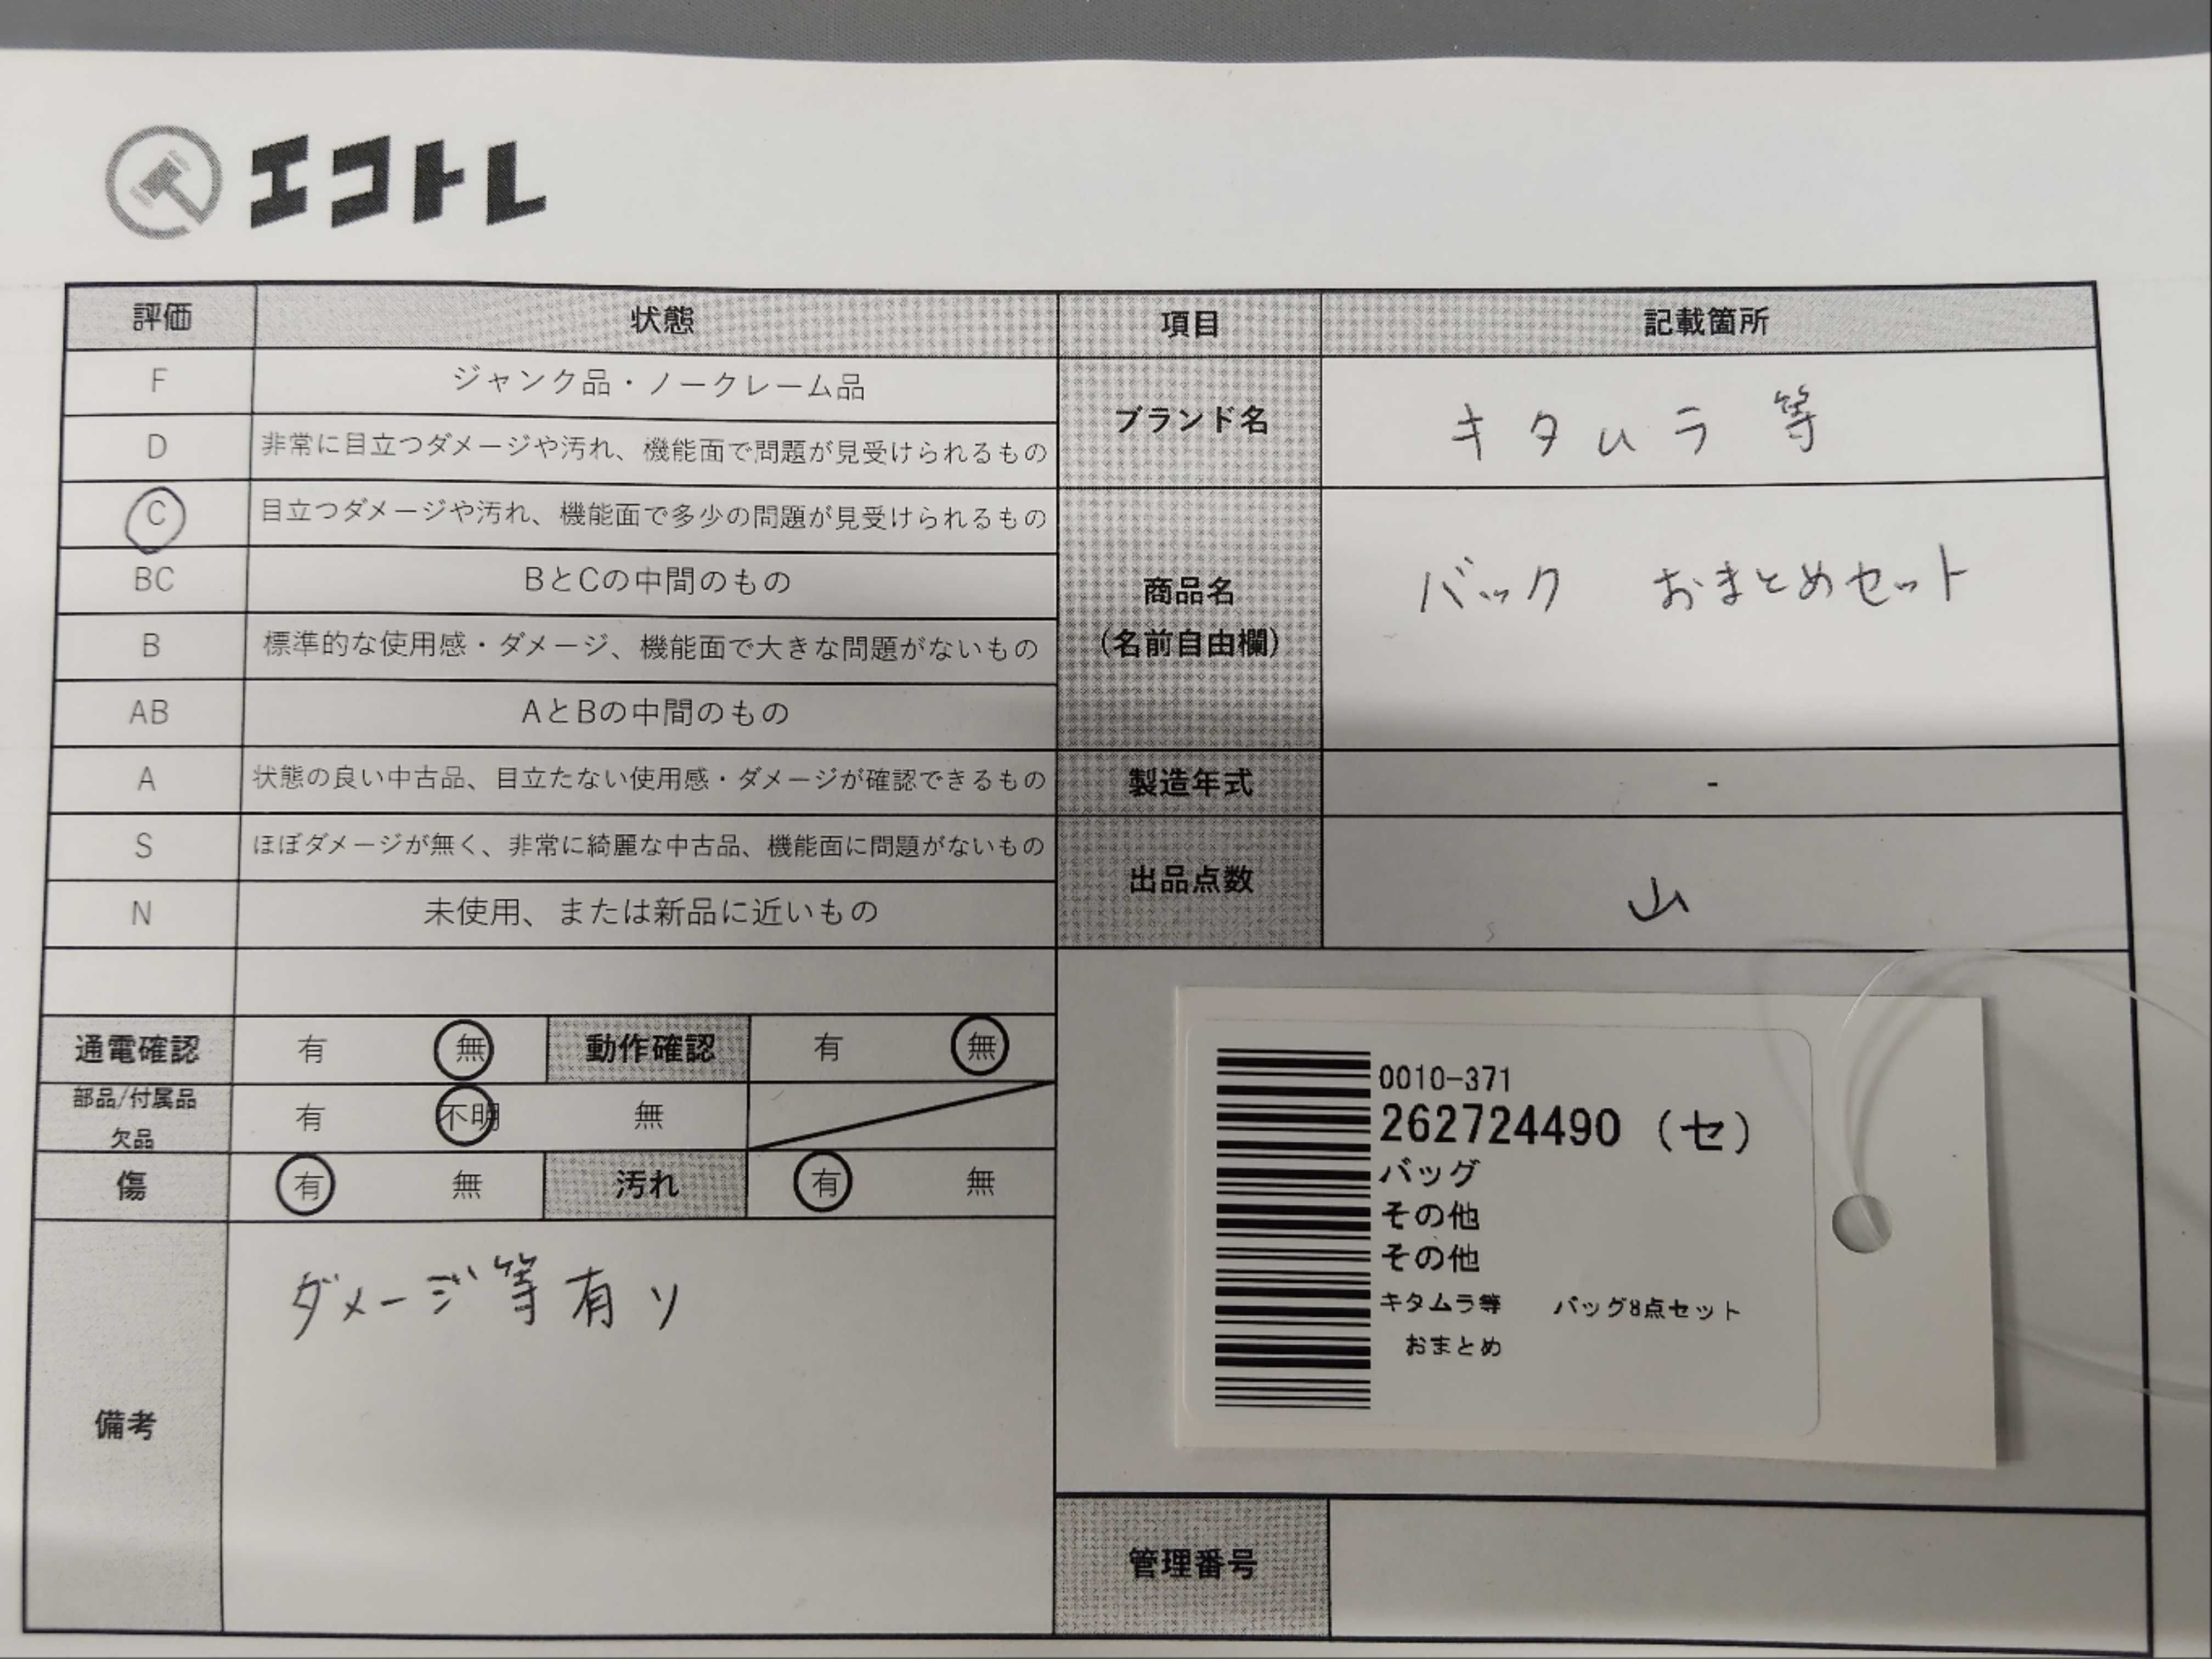 エコトレ
評価 状態 項目 記載箇所
F ジャンク品・ノークレーム品
D 非常に目立つダメージや汚れ、機能面で問題が見受けられるもの
C 目立つダメージや汚れ、機能面で多少の問題が見受けられるもの
BC BとCの中間のもの
B 標準的な使用感・ダメージ、機能面で大きな問題がないもの
AB AとBの中間のもの
A 状態の良い中古品、目立たない使用感・ダメージが確認できるもの
S ほぼダメージが無く、非常に綺麗な中古品、機能面に問題がないもの
N 未使用、または新品に近いもの
ブランド名 キタムラ 等
商品名
(名前自由欄)
バック おまとめセット
製造年式 -
出品点数 山
通電確認 有 無 動作確認 有 無
部品/付属品
欠品
有 不明 無
傷 有 無 汚れ 有 無
備考
ダメージ等有り
0010-371
262724490 (セ)
バッグ
その他
その他
キタムラ等 バッグ8点セット
おまとめ
管理番号